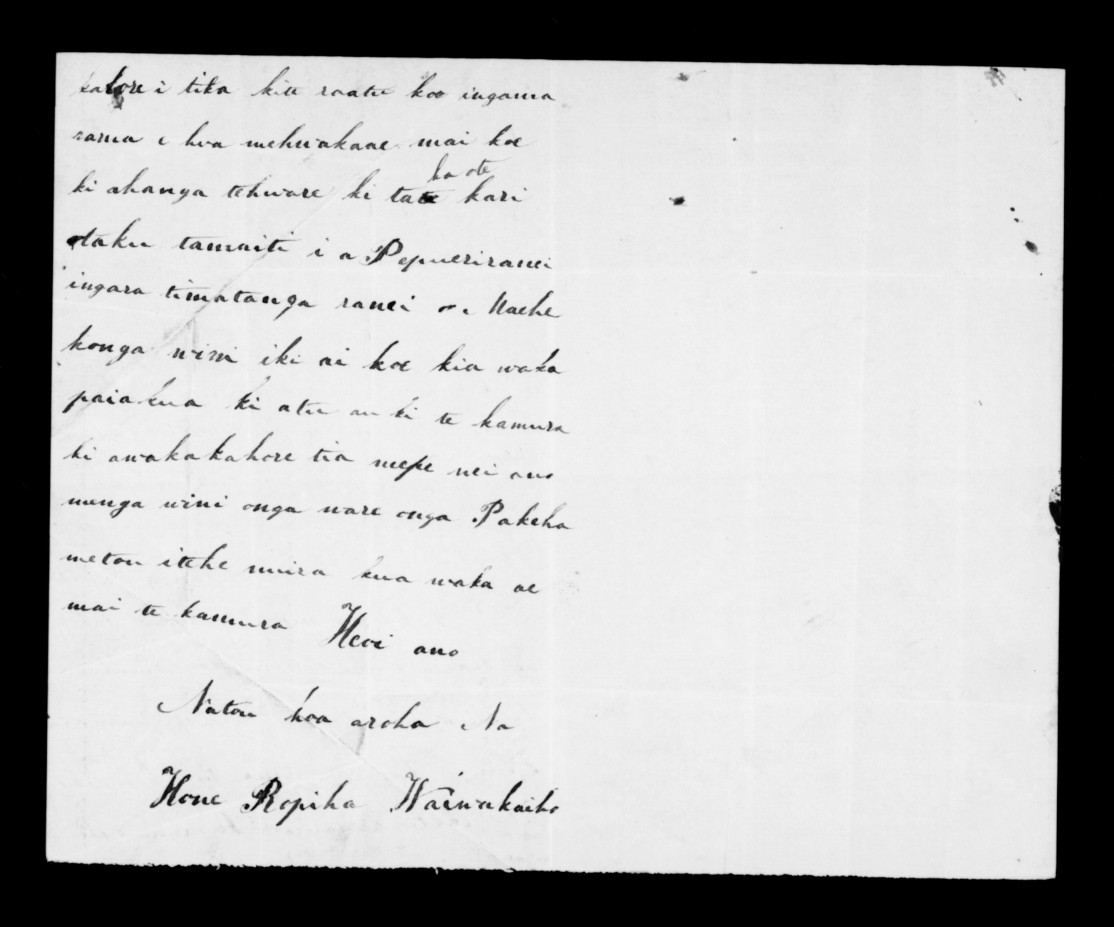 kahore i tika kite raatu koo ingama
rama e hoa mehwakaae mai koe
ki ahanga tehware ki ta te kari
ka ote
otaku tamaiti i a Pepueriranei
ingara timatanga ranei o Maehe
konga wini iki ai koe kia waka
paia kua ki atu au ki te kamura
ki awakakahore tia mepe nei ano
nunga wini onga ware onga Pakeha
metou itehe muira kua waka ae
mai te kamura Heoi ano
Natou hoa aroha Na
Hone Ropiha Waiwakaiho